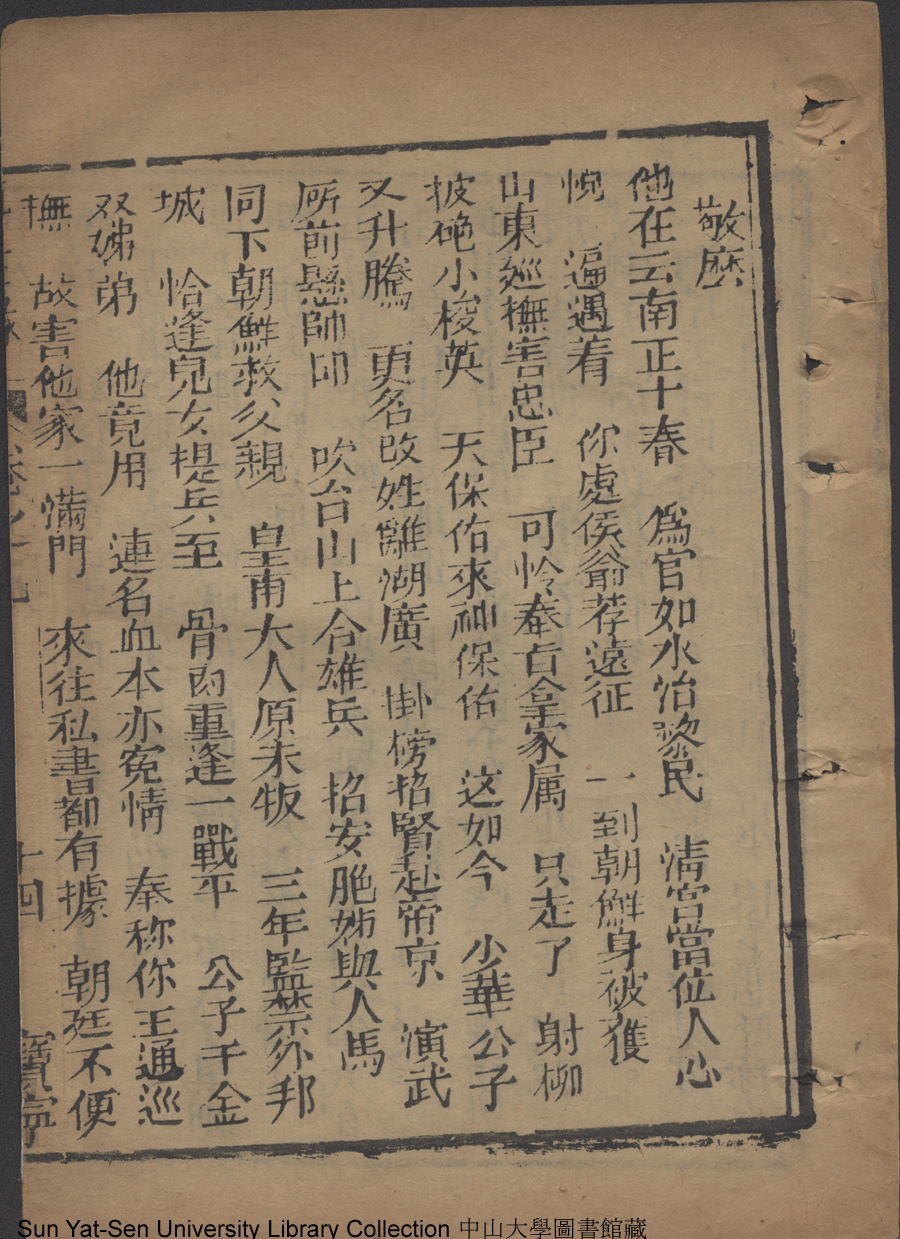 敬麽
他在云南正十春　爲官如水治黎民　清宮當位人心
悅　逼遇着　你處侯爺荐遠征　一到朝鮮身被獲
山東巡撫害忠臣　可怜奉旨拿家属　只走了　射柳
披袍小梭英　天保佑來神保佑　这如今　少華公子
又升騰　更名改姓離湖廣　掛榜招賢赴帝京　演武
所前懸帥印　吹台山上令雄兵　招安胞姊與人馬
同下朝鮮救父親　皇甫大人原未叛　三年監禁外邦
城　恰逢兒女提兵至　骨肉重逢一戰平　公子千金
双娣弟　他竟用　連名血本亦寃情　奉称你王通巡
撫　故害他家一滿門　來往私書都有據　朝廷不便
卷之十九　十四　寶寧
Sun Yat-Sen University Library Collection 中山大學圖書館藏